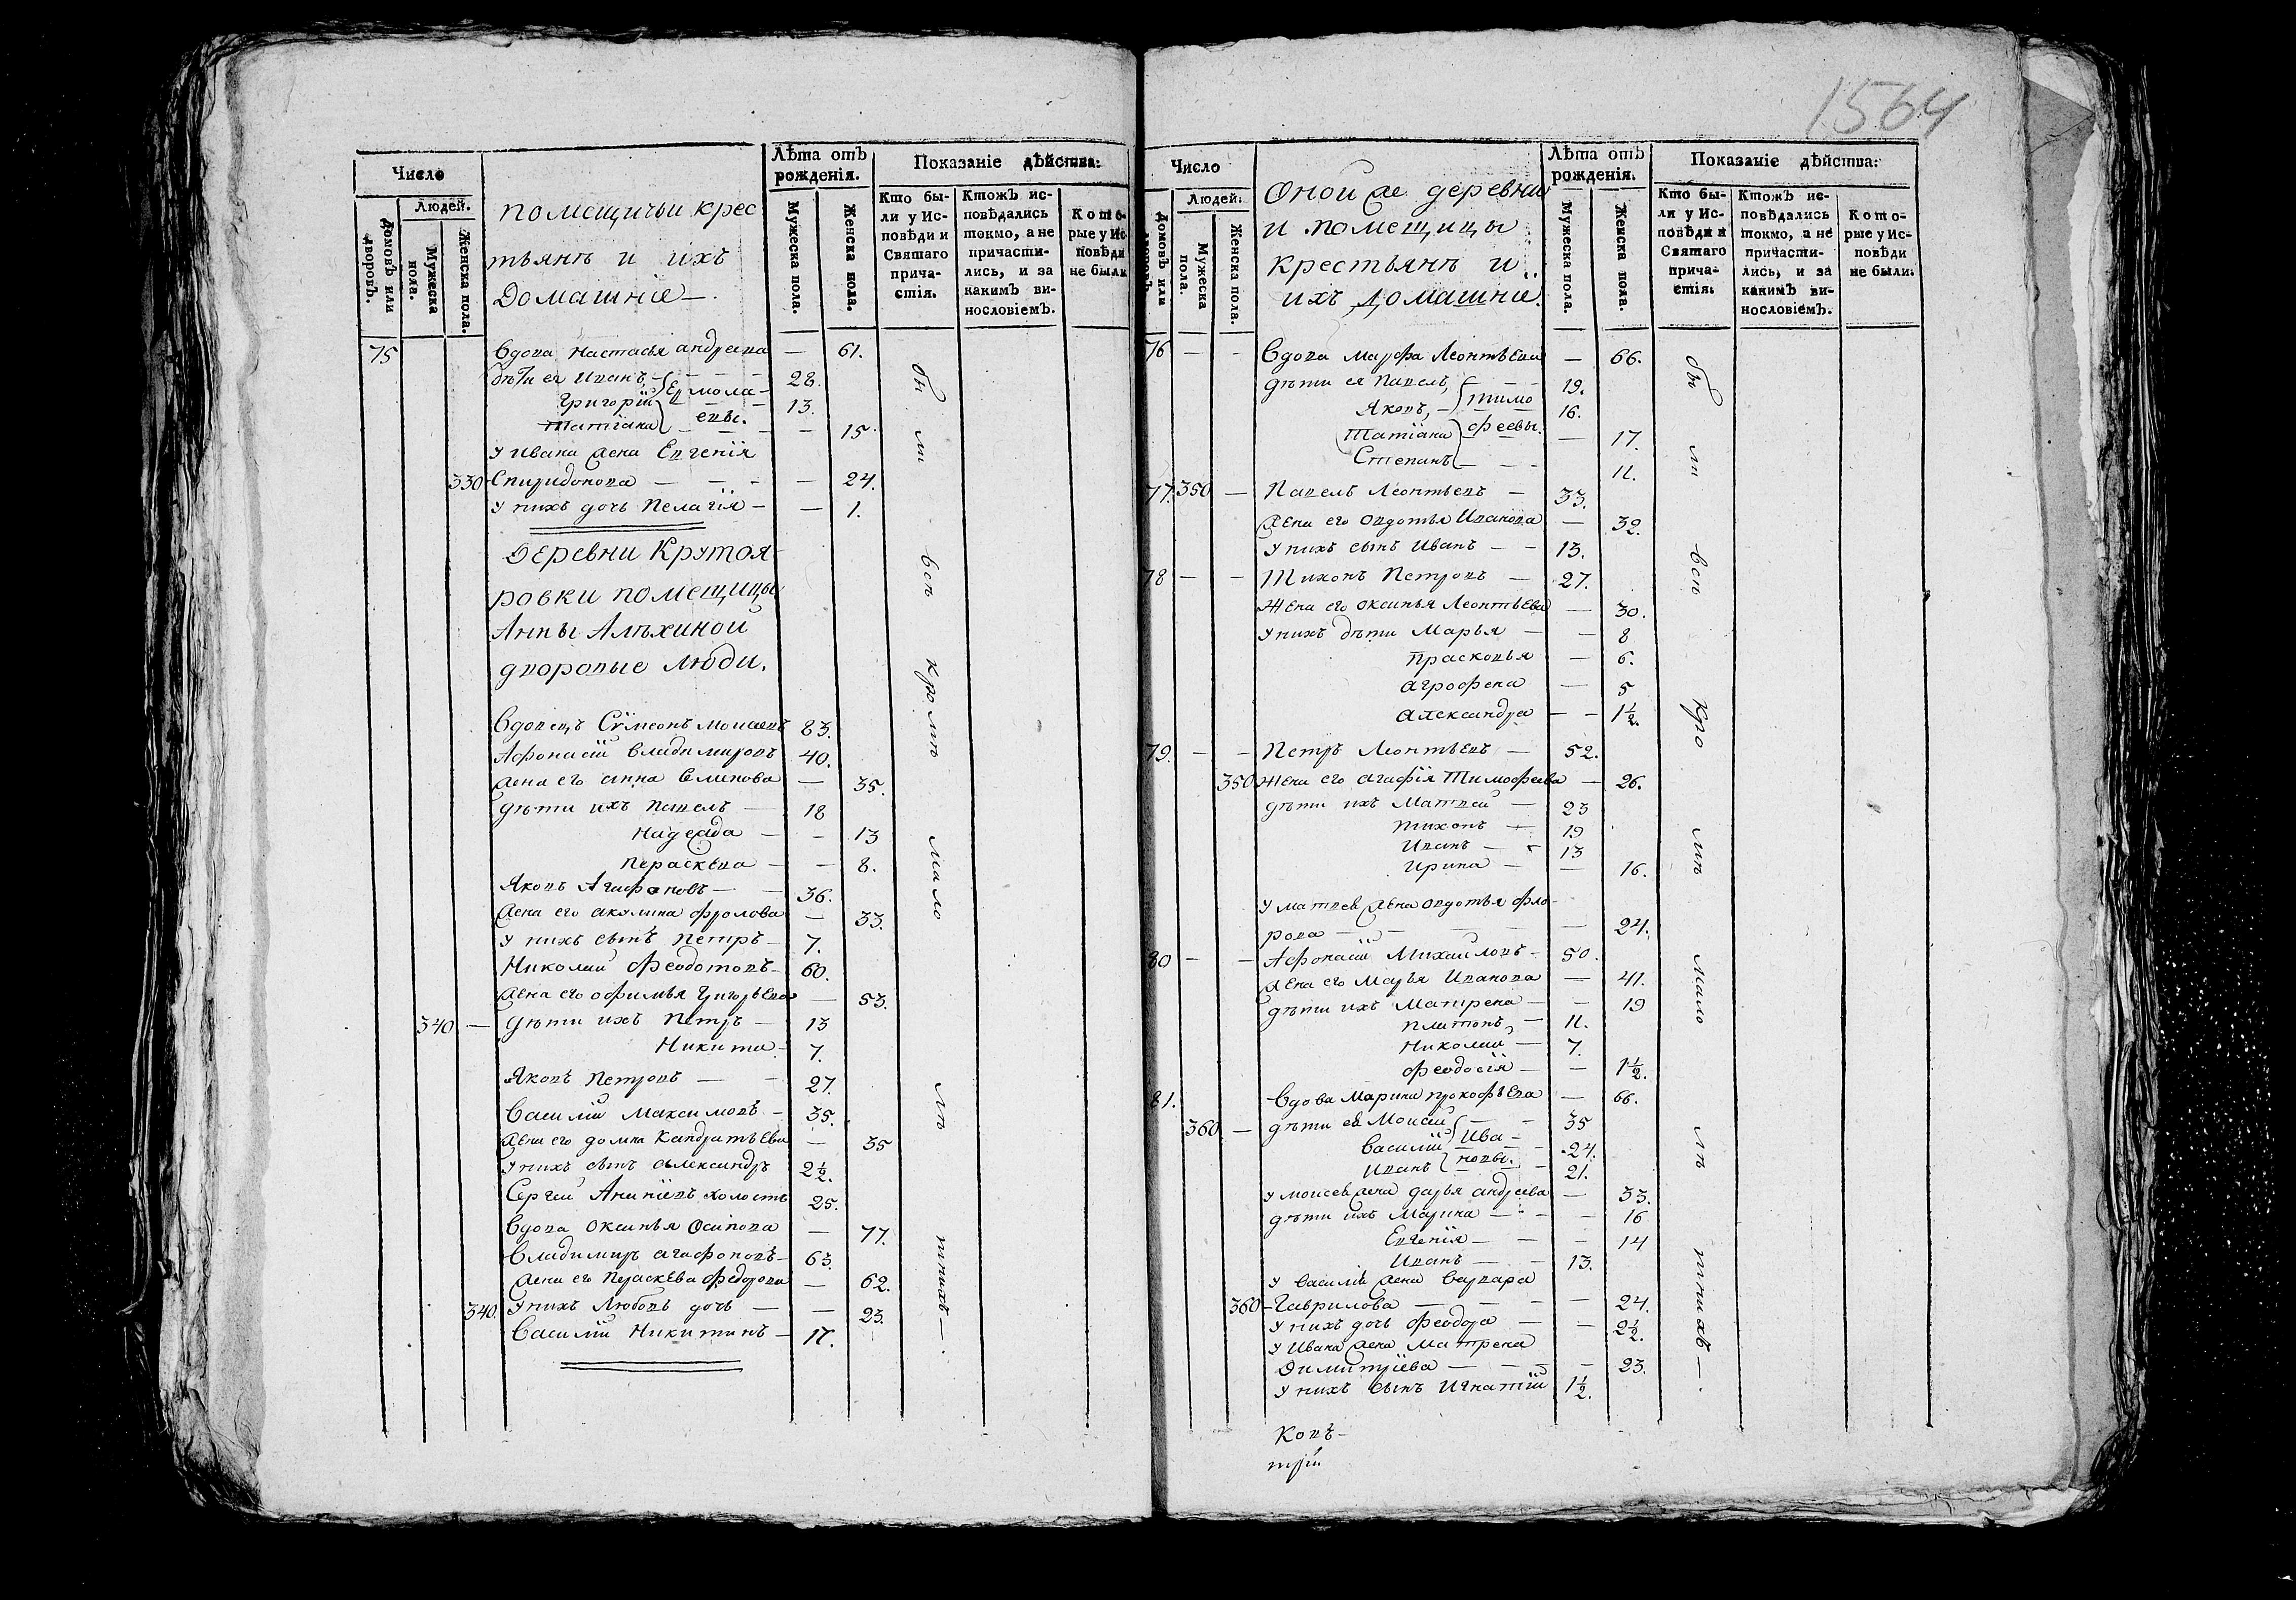 Число
Людей.
Домовъ или дворовъ.
Мужеска пола.
Женска пола.
помещичьи крес
тьянъ и ихъ
Домашніе —.
Лѣта отъ рожденія.
Мужеска пола.
Женска пола.
Показаніе дѣйства:
Кто бы-ли у Ис-повѣди и Святаго прича-стія.
Ктожъ ис-повѣдались токмо, а не причасти-лись, и за какимъ ви-нословіемъ.
Кото-рые у Ис-повѣди не были
75 Вдова Настасья андреева — 61.
дѣти ея Иванъ — 28.
Григорій Ермола- 13.
Татіана евы. — 15.
у Ивана жена Евгенія
330 Спиридонова — — 24.
у нихъ дочь Пелагія — — 1.
Деревни Крутоя-
ровки помещицы
Анны Алѣхиной
дворовые люди.
Вдовецъ Сѵмеонъ Моисеевъ 83.
Афонасій владимировъ 40.
жена его анна Семенова — 35.
дѣти ихъ Павелъ — 18
Надежда — — 13
Пераскева — — 8.
Яковъ Агафоновъ — 36.
жена его акулина фролова — 33.
у нихъ сынъ Петръ — 7.
Николай Феодотовъ — 60.
жена его офимья Григорьева — 53.
340 — дѣти ихъ Петръ — 13
Никита — 7.
Яковъ Петровъ — 27.
Василій Максимовъ — 35.
жена его домна Кандратьева — 35
у нихъ сынъ александръ 2½.
Сергей Ананіевъ холостъ 25.
Вдова Оксинья Осипова — 77.
Владимиръ агафоновъ — 63.
жена его Пераскева федорова — 62.
340. у нихъ Любовь дочь — — 23.
Василій Никитинъ — 17.
бы ли всѣ кромѣ мало лѣ тнихъ — .
1564
Число
Людей.
Домовъ или дворовъ.
Мужеска пола.
Женска пола.
Оной же деревни
и помещицы
крестьянъ и
ихъ домашніе.
Лѣта отъ рожденія.
Мужеска пола.
Женска пола.
Показаніе дѣйства:
Кто бы-ли у Ис-повѣди и Святаго прича-стія.
Ктожъ ис-повѣдались токмо, а не причасти-лись, и за какимъ ви-нословіемъ.
Кото-рые у Ис-повѣди не были.
76 — - Вдова марфа Леонтьева — 66.
дѣти ея Павелъ, — 19.
Яковъ, — тимо 16.
Татіана феевы. — 17.
Степанъ — - - 11.
77. 350 — Павелъ Леонтьевъ — 33.
жена его овдотья Иванова — 32.
у нихъ сынъ Иванъ — - 13.
78 — - Тихонъ Петровъ — 27.
Жена его оксинья Леонтьева — 30.
у нихъ дѣти Марья — — 8
Прасковья — 6.
агрофена — 5
александра — - 1½.
79. — - Петръ Леонтьевъ — 52.
350 Жена его агафія Тимофеева — 26.
дѣти ихъ Матвей — 23
тихонъ — 19
Иванъ — - 13
Ирина — — 16.
у матвея жена овдотья фло-
рова — — — 24.
80 — - Афонасій Михайловъ - 50.
жена его Марья Иванова — 41.
дѣти ихъ Матрена — - 19
платонъ, — 11.
Николай — 7.
Феодосія — — 1½.
81. Вдова Марина прокофьева — 66.
360 — дѣти ея Моисей — 35
Василій Ива- 24.
Иванъ новы. 21.
у моисея жена дарья андреева — 33.
дѣти ихъ Марина — - — 16
Евгенія — — 14
Иванъ — - 13.
у Василія жена Варвара
360 Гаврилова — — — 24.
у нихъ дочь Феодора — - 2½.
у Ивана жена Матрена
Димитріева — — - 23.
у нихъ сынъ Игнатій 1½.
бы ли всѣ Кро мѣ мало лѣ тнихъ — .
Ковъ-
трій